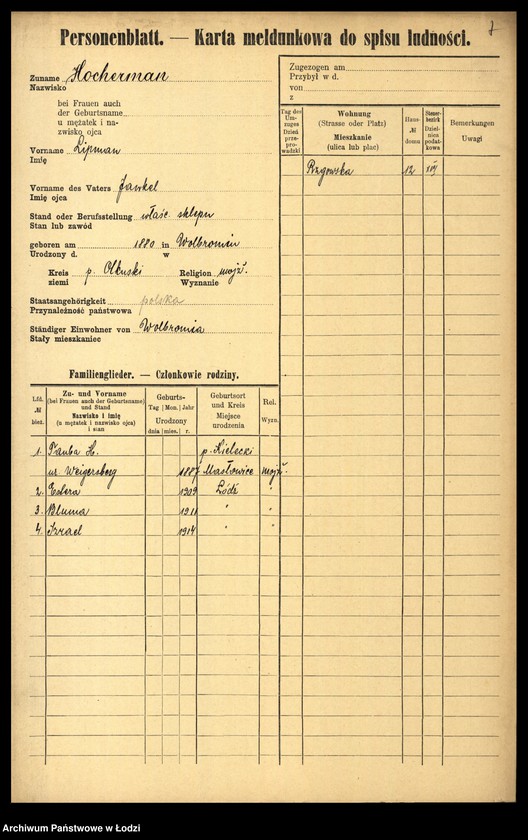 Personenblatt. — Karta meldunkowa do spisu ludności.
Zuname Hocherman
Nazwisko
bei Frauen auch
der Geburtsname
u mężatek i na-
zwisko ojca
Vorname Lipman
Imię
Vorname des Vaters Jankel
Imię ojca
Stand oder Berufsstellung właśc. sklepu
Stan lub zawód
geboren am 1880 in Wolbromiu
Urodzony d. w
Kreis p. Olkuski Religion mojż.
ziemi Wyznanie
Staatsangehörigkeit polska
Przynależność państwowa
Ständiger Einwohner von Wolbromia
Stały mieszkaniec
Zugezogen am
Przybył w d.
von
z
Tag des Um-zuges Dzień prze-pro-wadzki
Wohnung
(Strasse oder Platz)
Mieszkanie
(ulica lub plac)
Haus № domu
Steuer-bezirk Dziel-nica podat-kowa
Bemerkungen
Uwagi
Rzgowska 12
Familienglieder. — Członkowie rodziny.
Lfd. № bież.
Zu- und Vorname
(bei Frauen auch der Geburtsname)
und Stand
Nazwisko i imię
(u mężatek i nazwisko ojca)
i stan
Geburts-
Tag Mon. Jahr
Urodzony
dnia mies. r.
Geburtsort
und Kreis
Miejsce
urodzenia
Rel.
Wyzn.
1. Tauba H. p. Kielecki
ur. Weigensberg 1887 Masłowice mojż.
2. Estera 1909 Łódź "
3. Bluma 1911 " "
4. Izrael 1914 " "
Archiwum Państwowe w Łodzi